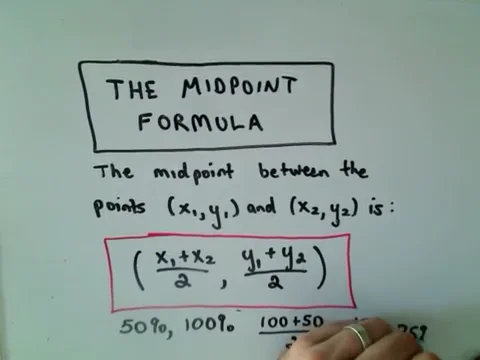 THE MIDPOINT
FORMULA
The midpoint between the
points (x₁,y₁) and (x₂,y₂) is:
(x₁+x₂/2, y₁+y₂/2)
50%, 100% 100+50